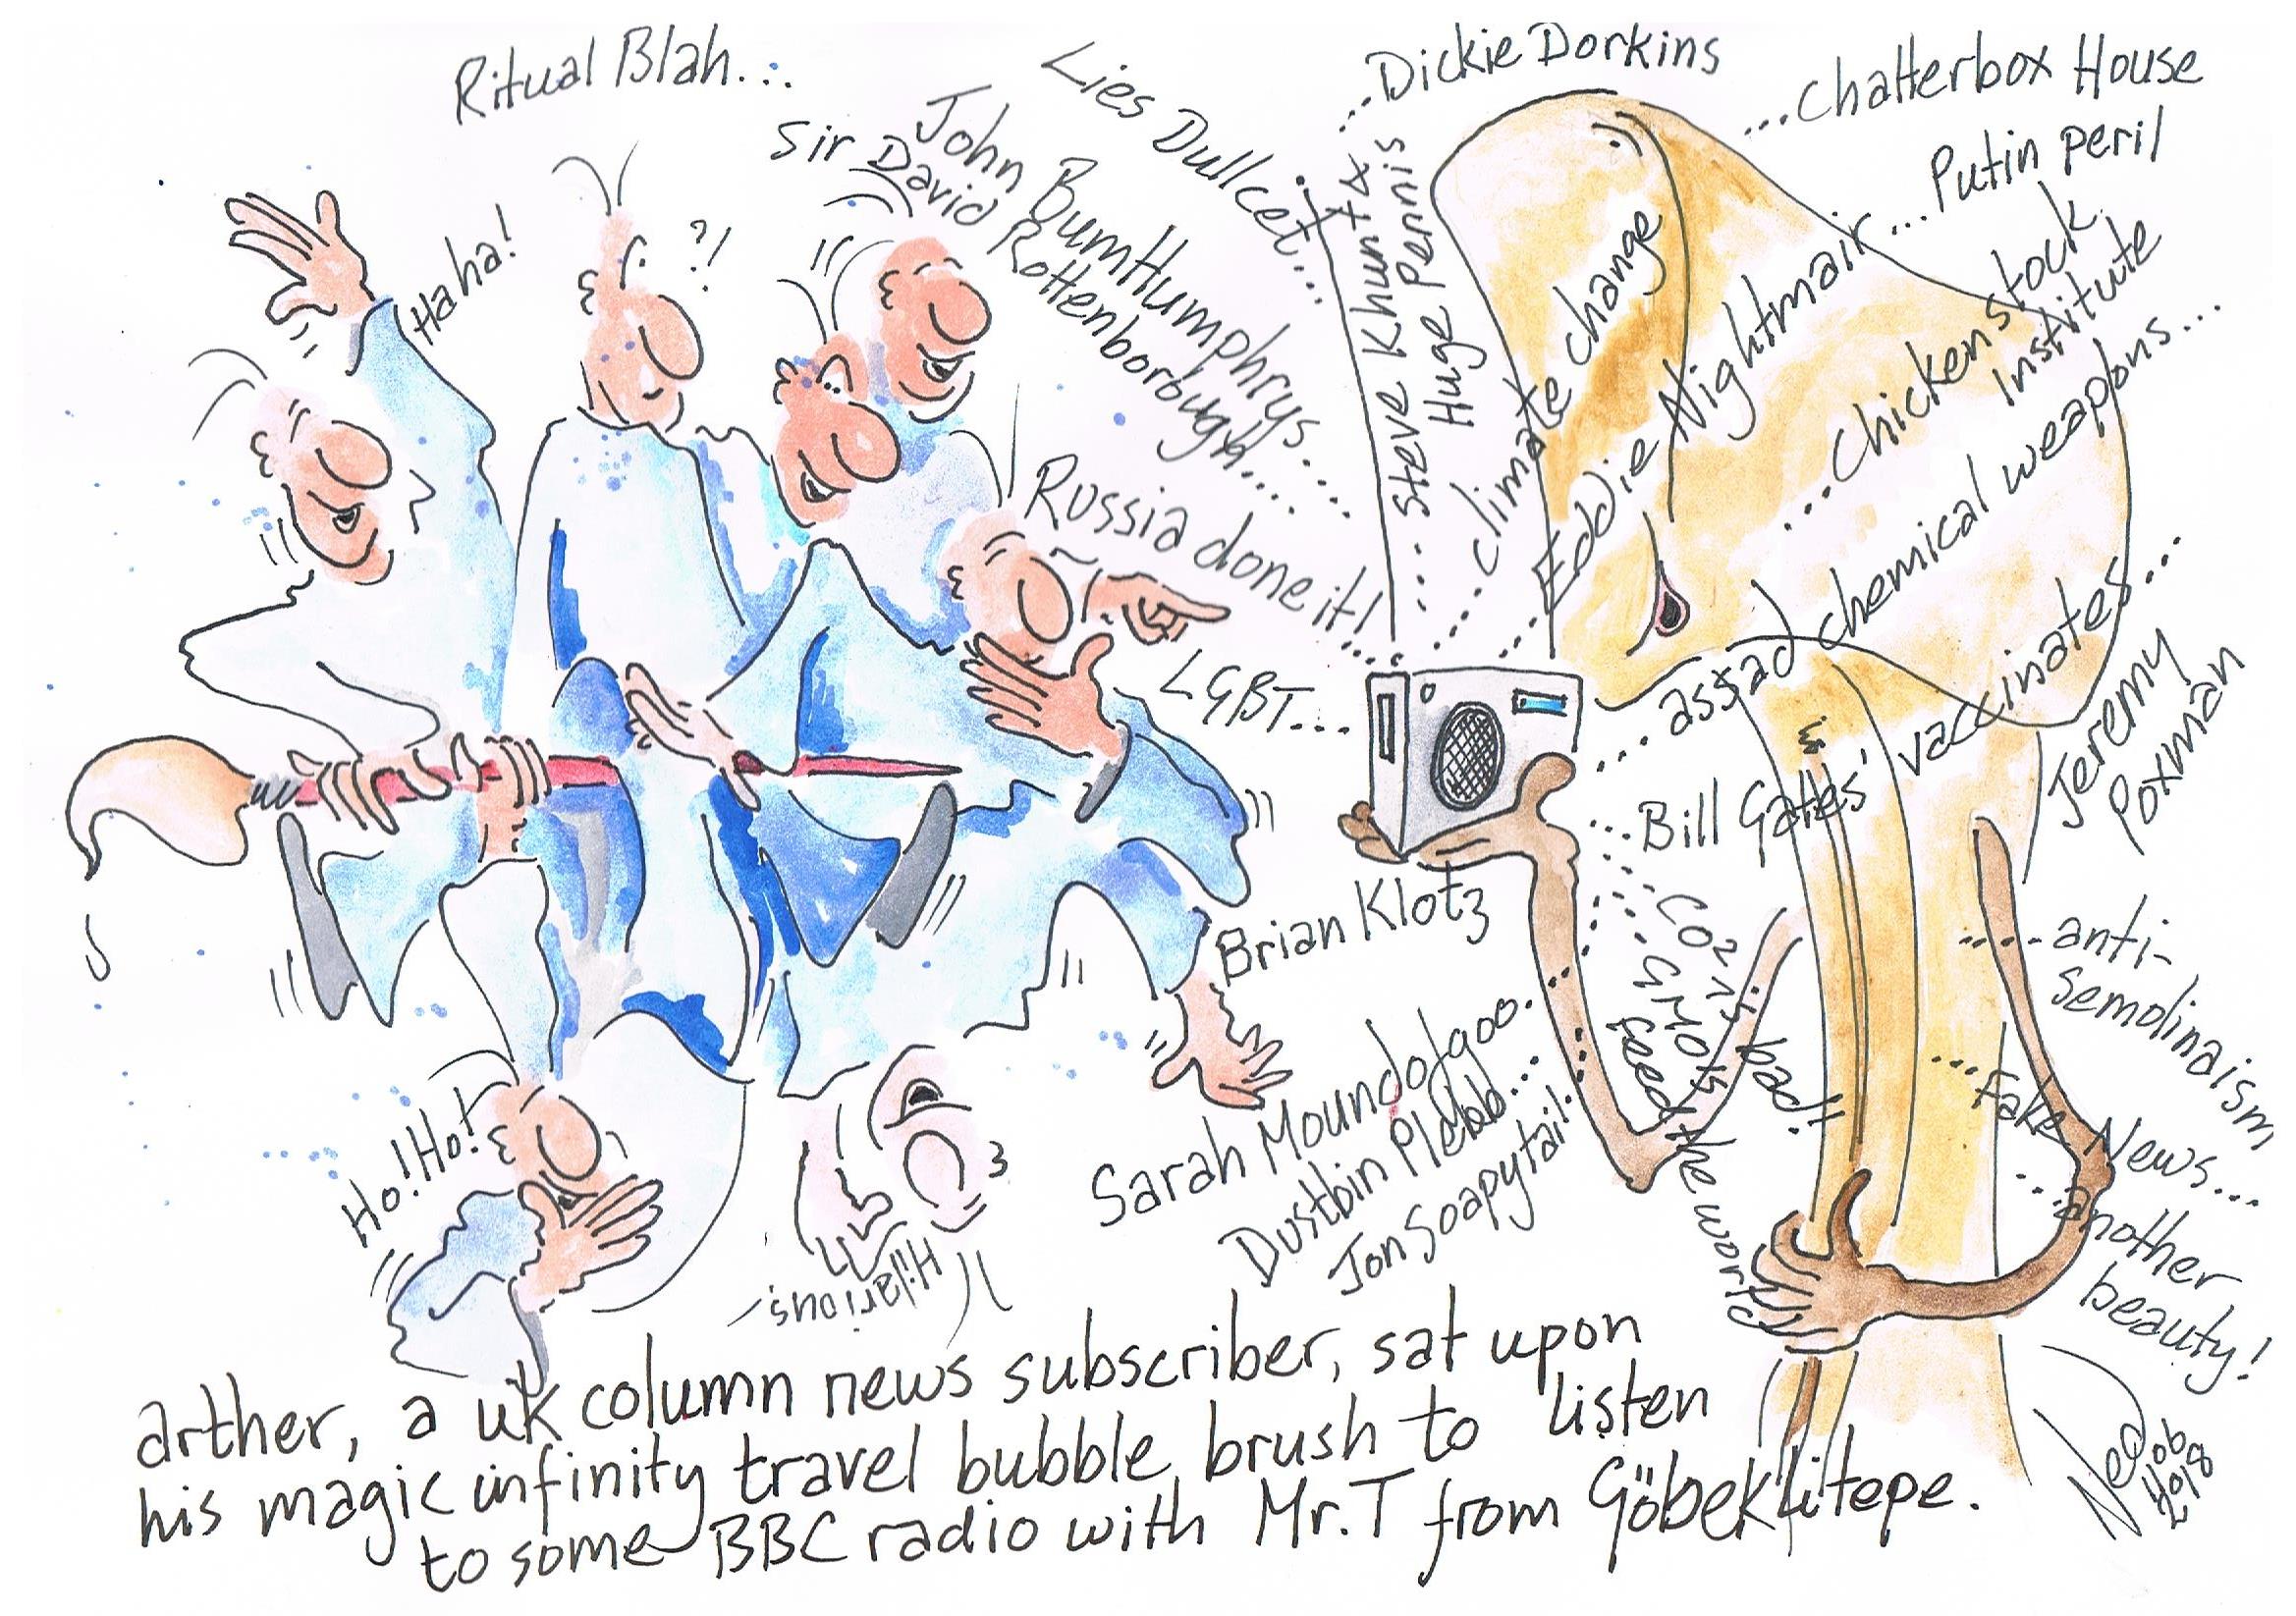 Ritual Blah...
Haha!
?!
Sir David
Rottenborough....
John BumHumphrys....
Lies Dullcet...
...Dickie Dorkins
...Chatterbox House
...Steve Khunt &
Huge Pennis
climate change
Eddie Nightmair...Putin peril
...Chickenstock
institute
...assad chemical weapons...
Russia done it!...
LGBT...
...Bill Gates' vaccinates...
Jeremy
Poxman
Brian Klotz
Sarah Moundofgoo.
Dustbin Plebb...
Jon Soapytail
CO2's bad!!
GMOs
feed the world
....anti-
semolinaism
...Fake News...
...another
beauty!
Ho! Ho!
Hilarious
arther, a uk column news subscriber, sat upon
his magic infinity travel bubble brush to listen
to some BBC radio with Mr.T from Göbeklitepe.